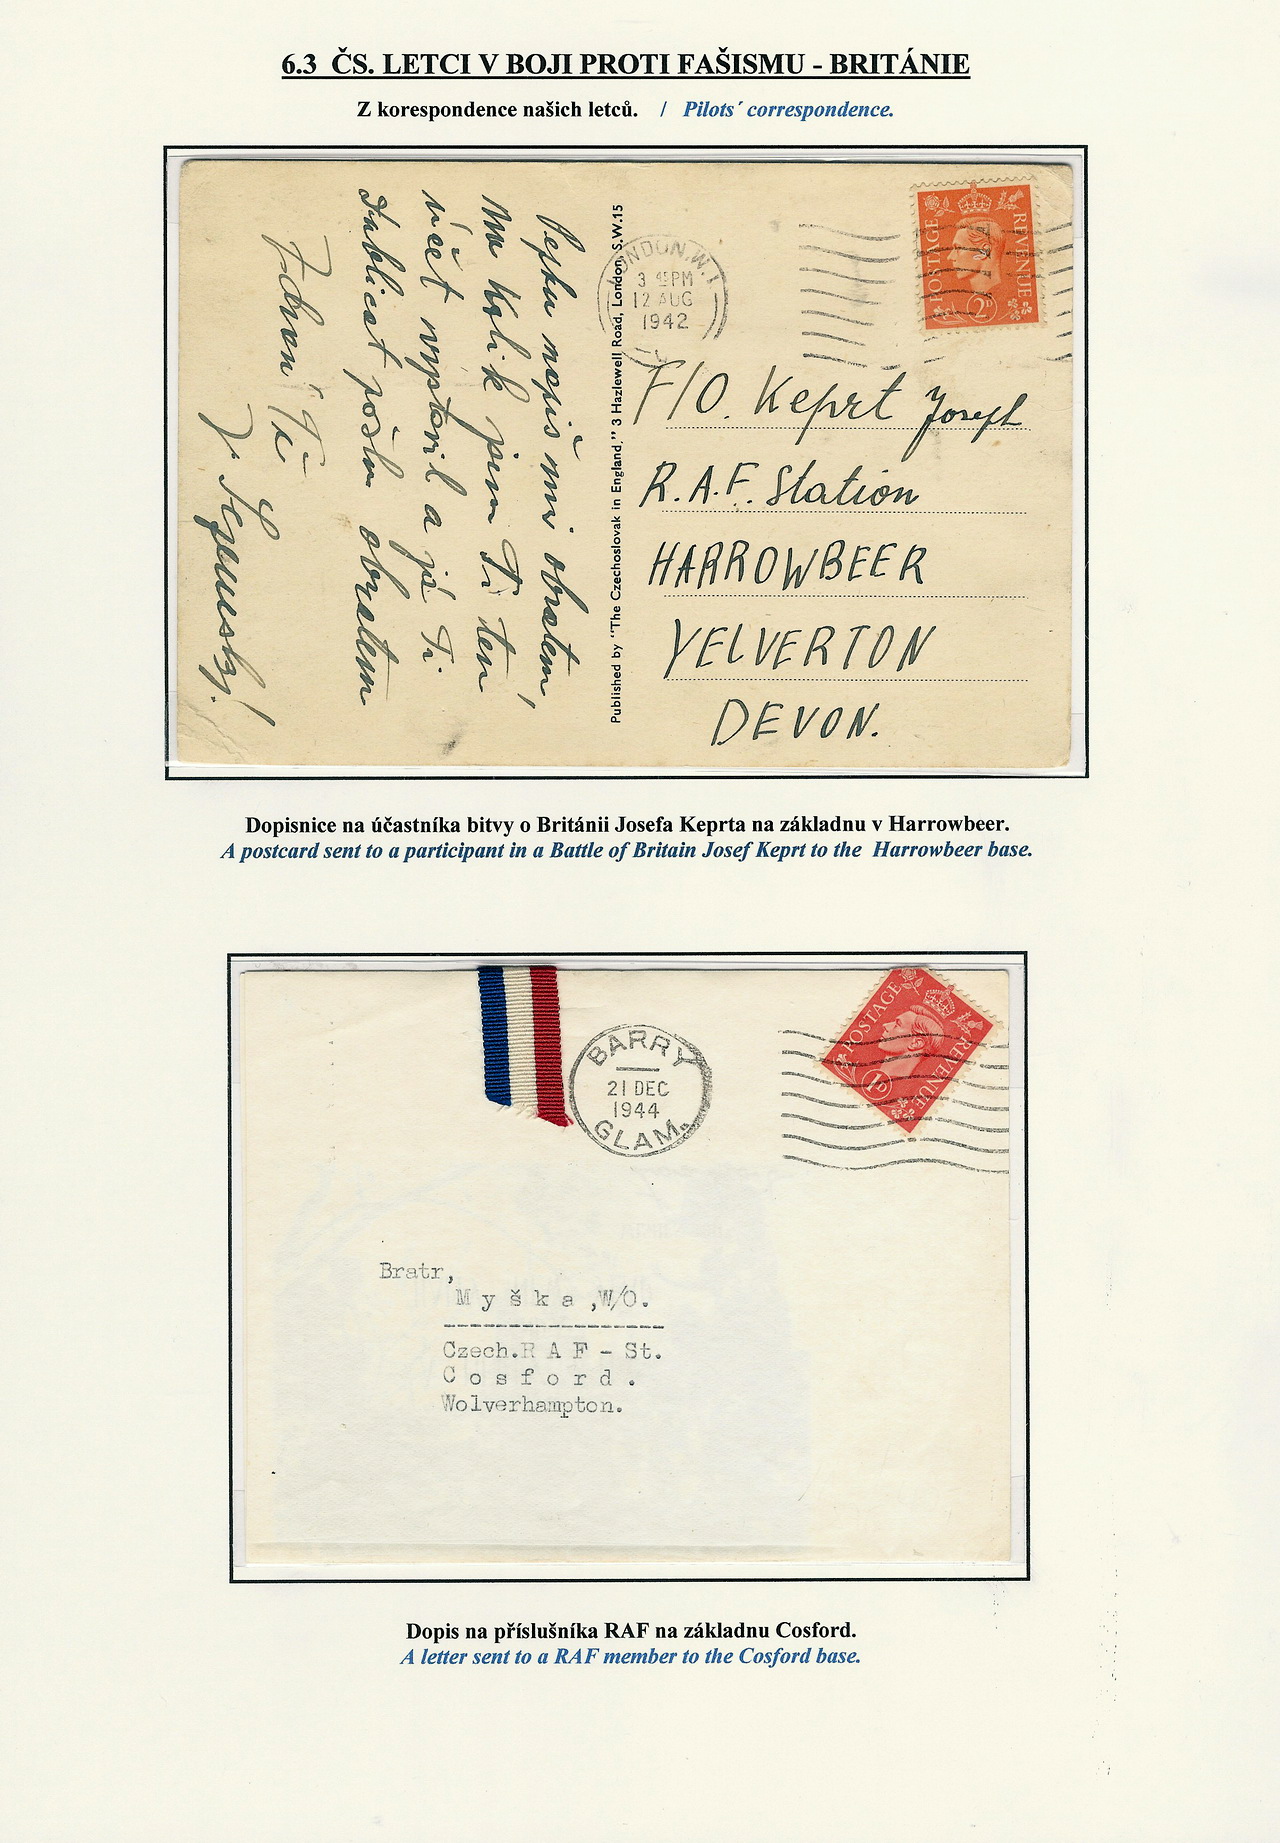 6.3 ČS. LETCI V BOJI PROTI FAŠISMU - BRITÁNIE
Z korespondence našich letců. / Pilots´ correspondence.
nepiš mi obratem,
kolik jsem Ti ten
účet vystavil a já Ti
obratem
Zdraví Tě
Published by "The Czechoslovak in England," 3 Hazlewell Road, London, S.W.15
LONDON.W.1
3 45PM
12 AUG
1942
POSTAGE REVENUE
2D
F/O. Keprt Josef
R.A.F. Station
HARROWBEER
YELVERTON
DEVON.
Dopisnice na účastníka bitvy o Británii Josefa Keprta na základnu v Harrowbeer.
A postcard sent to a participant in a Battle of Britain Josef Keprt to the Harrowbeer base.
BARRY
21 DEC
1944
GLAM.
POSTAGE REVENUE
1D
Bratr,
Myška,W/O.
Czech.R A F - St.
Cosford.
Wolverhampton.
Dopis na příslušníka RAF na základnu Cosford.
A letter sent to a RAF member to the Cosford base.